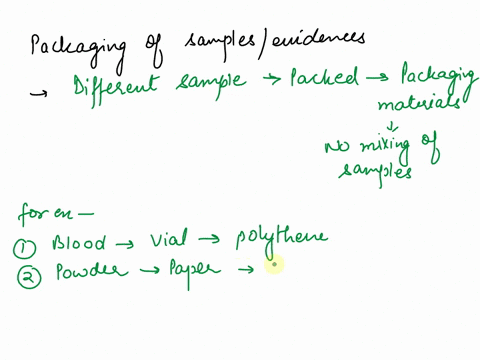 Packaging of samples/evidences
→ Different sample → Packed → Packaging
materials
↓
No mixing of
samples
for ex —
① Blood → Vial → polythene
② Powder → Paper →